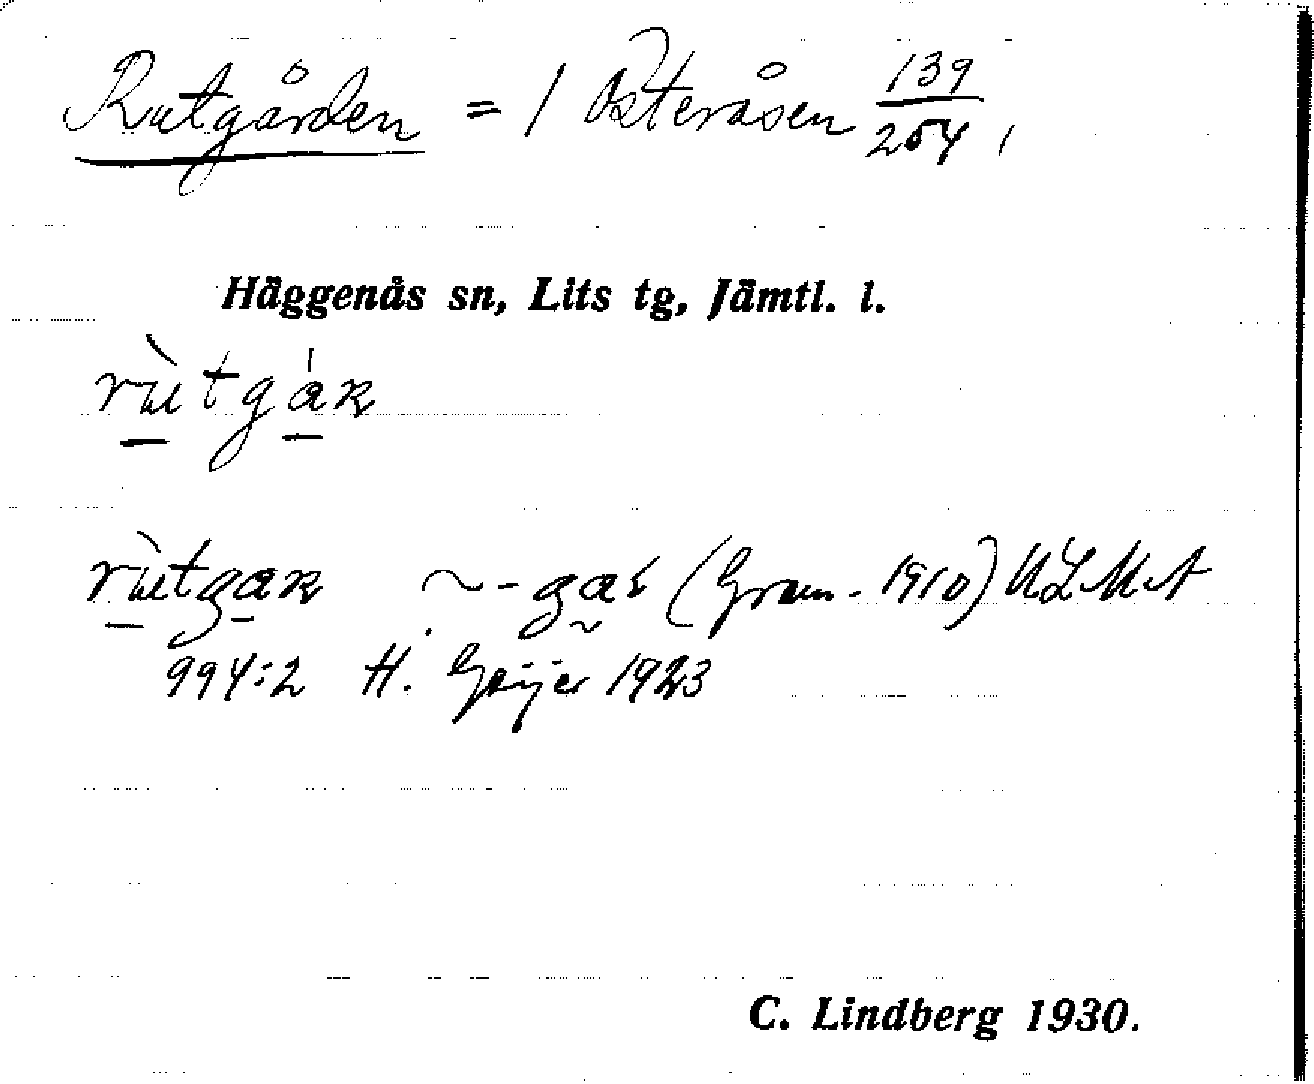 Rutgården = 1 Österåsen 139/254,
Häggenås sn, Lits tg, Jämtl. l.
rùtgáʀ
rùtgaʀ ~ - gaʀ (Gram. 1910) ULMA
994:2 H. Geijer 1923
C. Lindberg 1930.